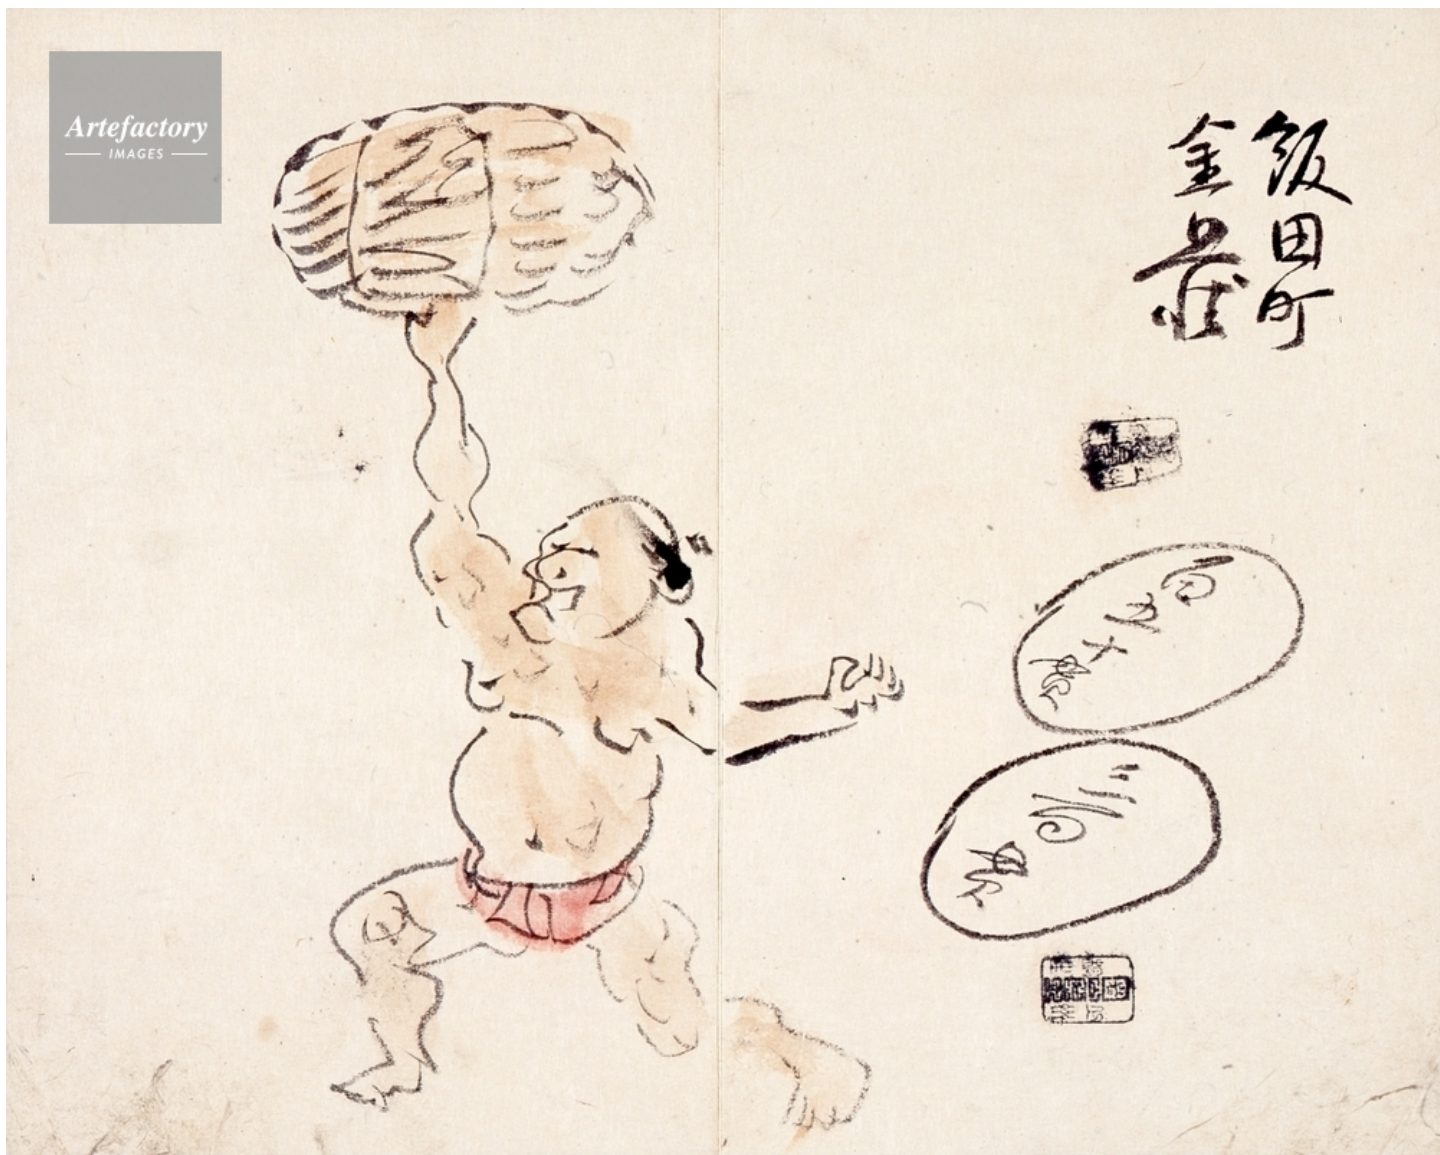 Artefactory
IMAGES
飯田町
金蔵
百五十貫
百貫